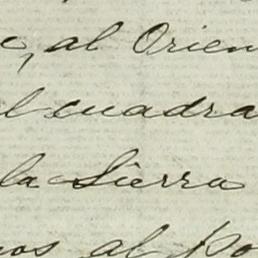 e, al Orien
el cuadra
la Sierra
nos al po